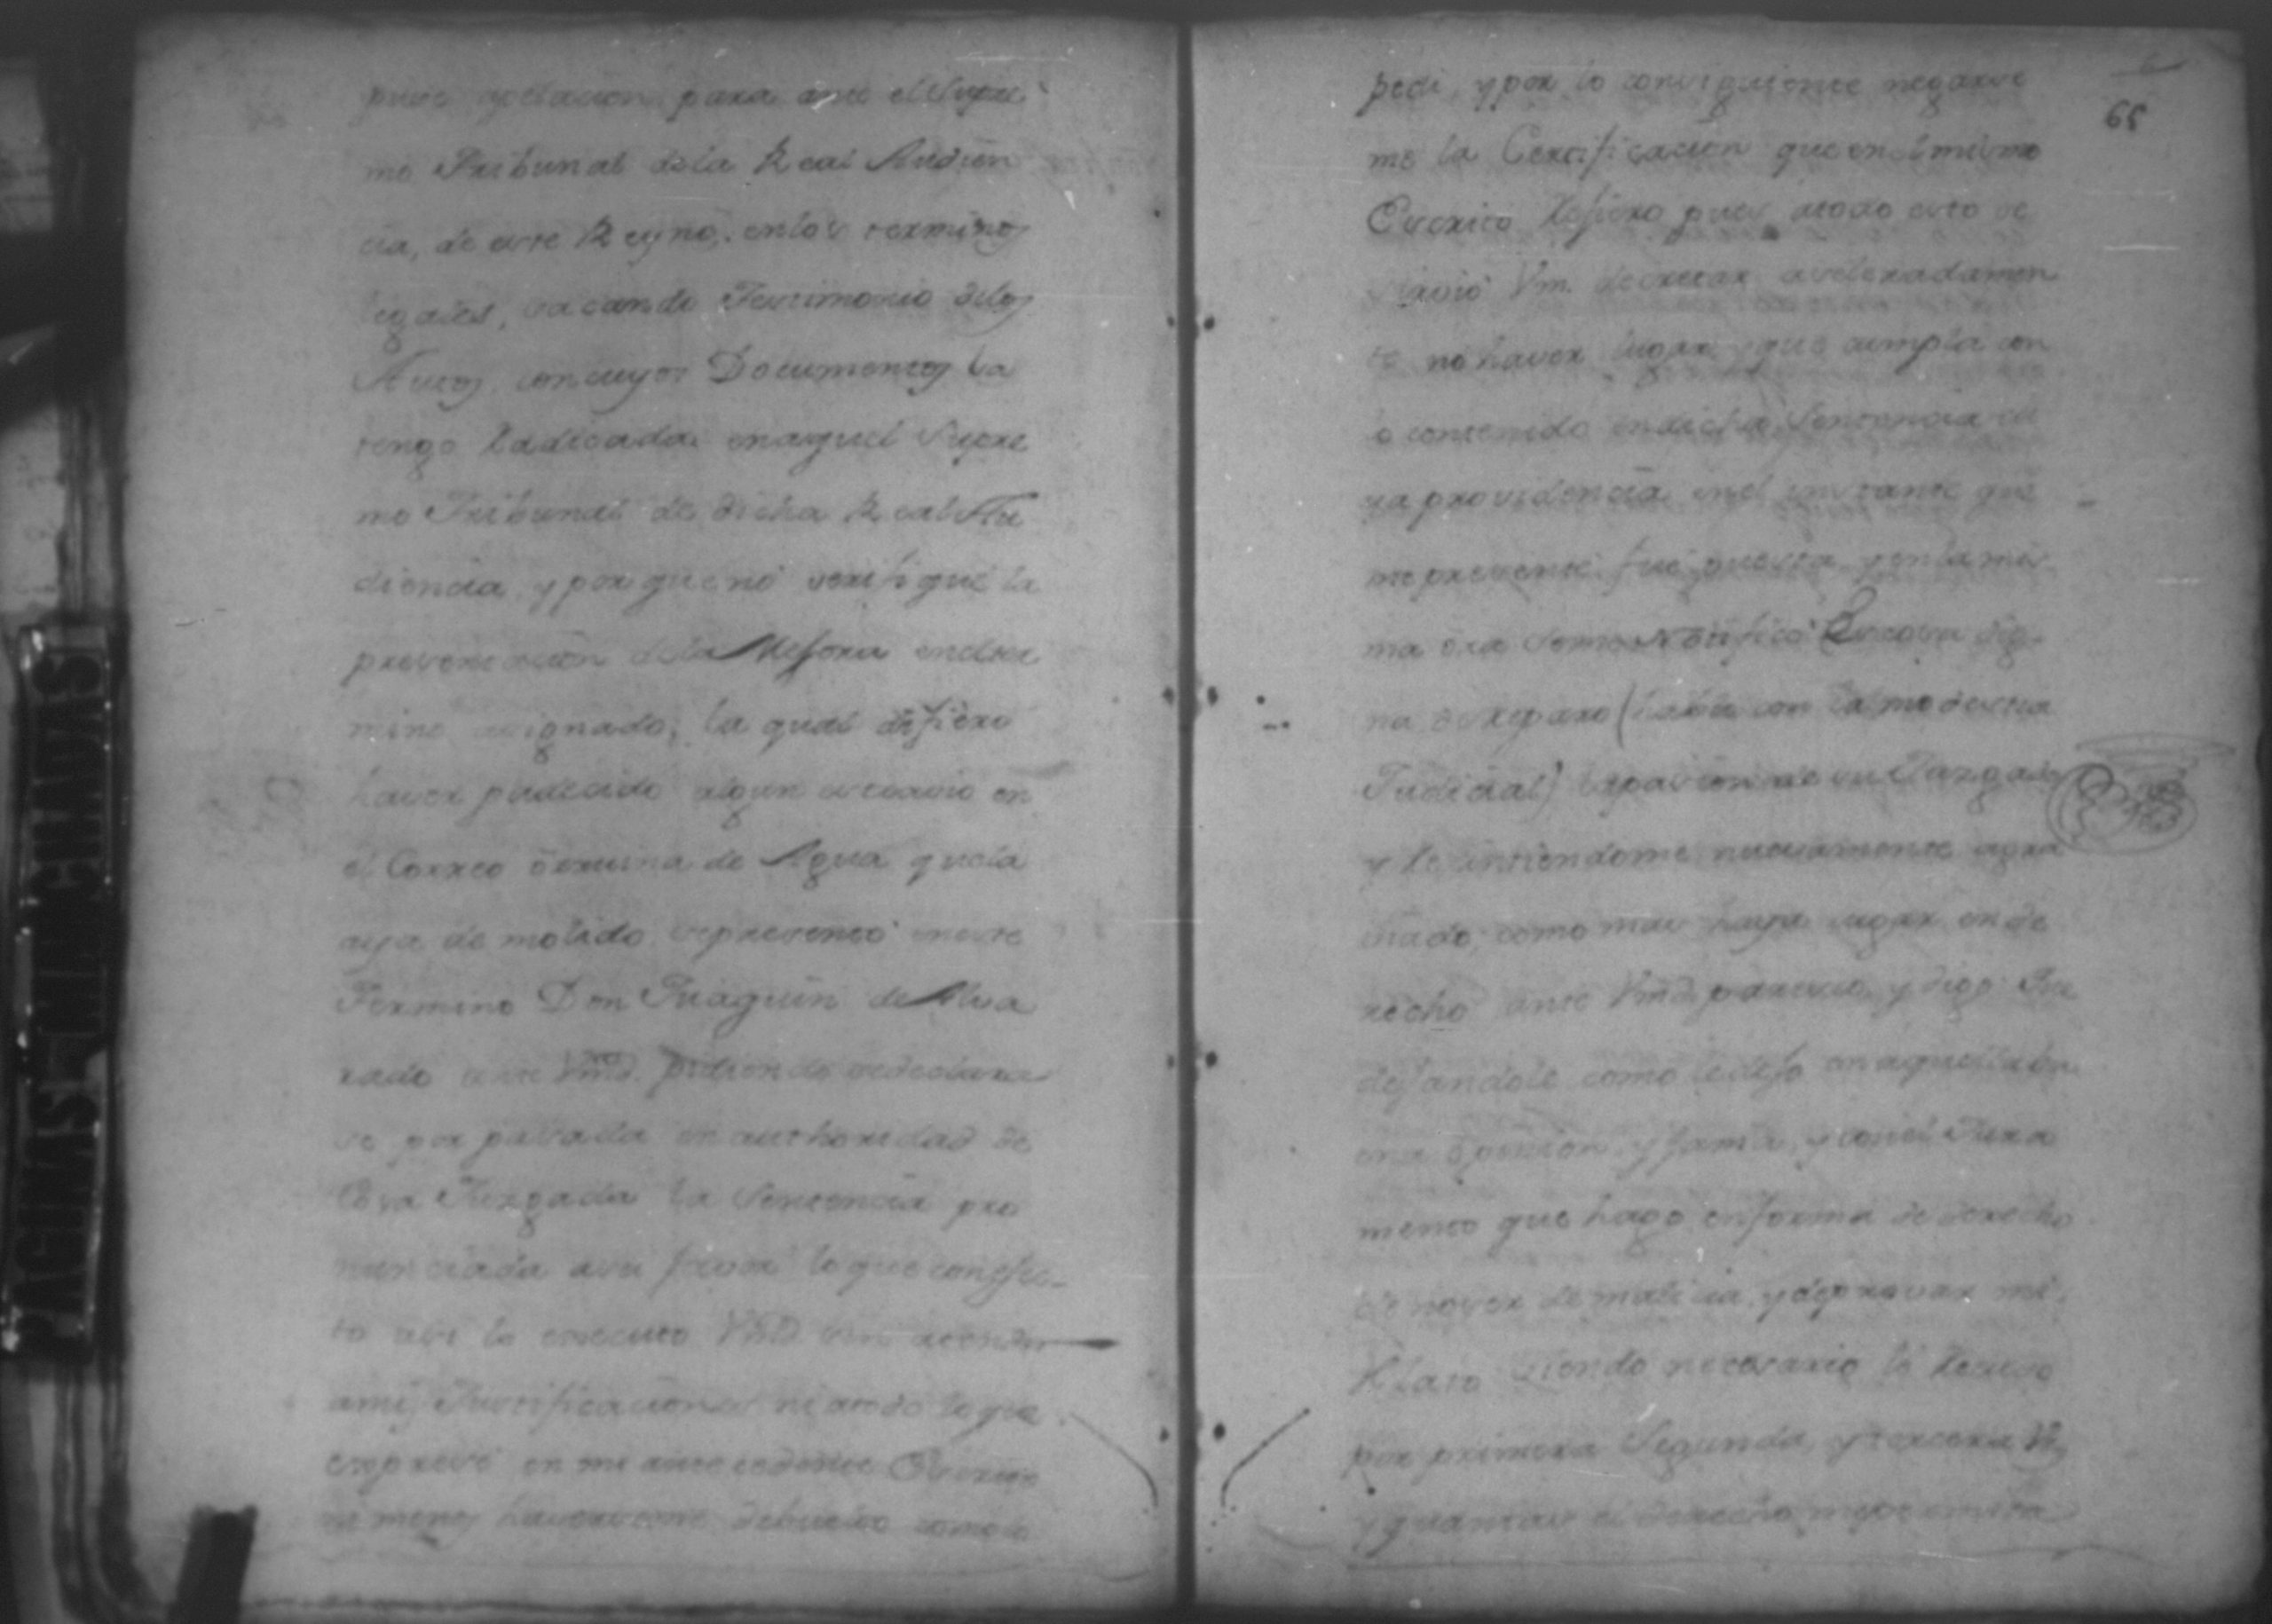 puse apelacion para ante el Supre
mo Tribunal de la Real Audien
cia, de este Reyno. en los terminos
legales, sacando Testimonio delos
Autos, con cuyos Documentos la
tengo Radicada en aquel Supre
mo Tribunal de dicha Real Au
diencia, y por que no verifique la
presentacion dela Mejora en el ter
mino asignado, la qual infiero
haver padecido algun atrasso en
el Correo de Agua que la
aya de molido se presentó en este
Termino Don Juaquin de Alva
rado ante Vmd. pidiendo se declara
se por passada en authoridad de
Cosa Juzgada la Sentencia pro
nunciada a su favor lo que con efec
to assi lo executo Vmd sin atender
a mis Justificaciones ni a todo lo que
exprese en mi antecedente Escrito
ni menos haverseme debuelto como lo
pedi, y por lo consiguiente negarse
me la Certificacion que en el mismo
Escrito Refiero pues a todo esto se
sirvió Vm. decretar aseleradamen
te no haver lugar, y que cumpla con
lo contenido en dicha Sentencia cu
ya providencia en el instante que
me presente fue puesta y en la mis
ma ora se me Notifico Cosa dig
na de reparo (hablo con la modestia
Judicial) la pasion de su Juzgado
y Resintiendome nuevamente agra
viado, como mas haya lugar en de
recho ante Vmd. paresco, y digo: Que
dejandole como le dejo en aquella bu
ena opinion, y fama, y con el Jura
mento que hago en forma de derecho
de no ser de malicia, y de provar mi
Relato siendo necesario lo Recuso
por primera Segunda, y tercera Vez
y quantas el derecho me permita
65